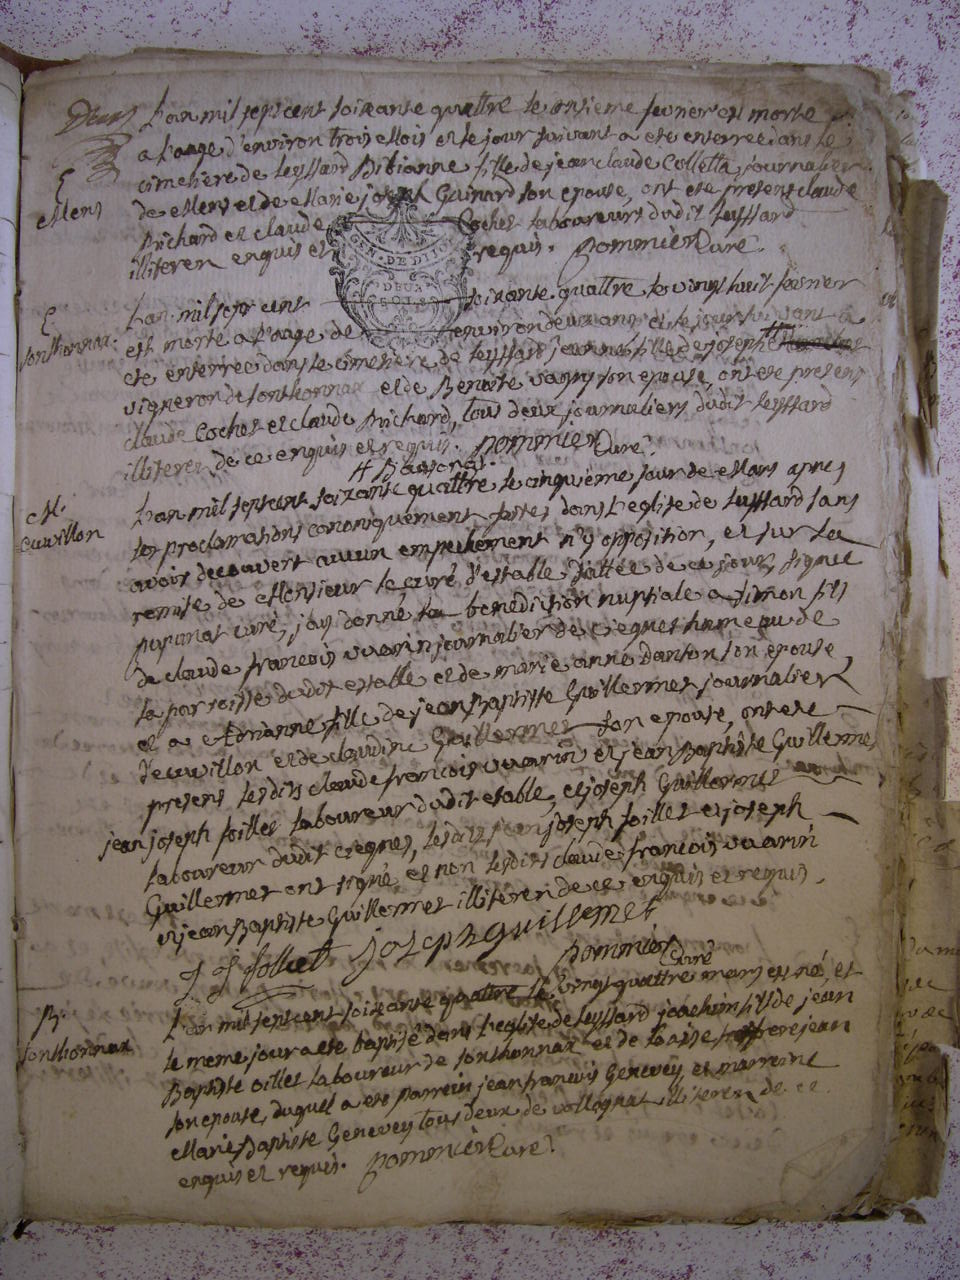 Deux
L'an mil sept cent soixante quattre le onsieme fevrier est morte
a l'aage d'environ trois mois et le jour suivant a eté enterrée dans le
E
cimetiere de Leyssard Bibianne fille de jean claude Colletta journalier
Mens
de Mens et de Marie joseph Guinard son epouse, ont eté presens claude
Brichard et claude Cochet laboureurs dudit Leyssard
illiteren enquis et requis. Pommier Curé.
GEN. DE DIJON
DEUX
SOLS
E
Sonthonnax.
L'an mil sept cent soixante quattre le vingt huit fevrier
est morte a l'aage de environ deux ans et le jour suivant a
eté enterrée dans le cimetiere de Leyssard jeanne fille de joseph
vigneron de Sonthonnax et de Benoite vagny son epouse, ont eté presens
claude Cochet et claude Brichard, tous deux journaliers dudit Leyssard
illiteres de ce enquis et requis. Pommier Curé.
M.
Cuvillon
L'an mil sept cent soixante quattre le cinquieme jour de Mars apres
les proclamations canoniquement faites dans l'eglise de Leyssard sans
avoir decouvert aucun empechement n'y opposition, et sur la
remise de Monsieur le curé d'estable dattée de ce jour, signée
curé, j'ay donné la benediction nuptiale a Simon fils
de claude francois vuarin journalier de Ceignes hameau de
la paroisse dudit estable et de marie anne Danton son epouse,
et a fille de jean Baptiste Guillermet journalier
de cuvillon et de claudine Guillermet son epouse, ont eté
presens lesdits claude francois vuarin et jean Baptiste Guillermet
jean joseph foillet laboureur dudit estable, et joseph Guillermet
laboureur dudit Ceignes, lesdits jean joseph foillet et joseph
Guillermet ont signé et non lesdits claude francois vuarin
et jean Baptiste Guillermet illiteren de ce enquis et requis.
J. J follliet josephguillemet
Pommier Curé
B.
Sonthonnax
L'an mil sept cent soixante quattre le vingt quattre mars est né, et
le meme jour a eté baptisé dans l'eglise de Leyssard joachim fils de jean
Baptiste oillet laboureur de Sonthonnax et de
son epouse, duquel a eté parrein jean francois Genevey et marreine
Marie Baptiste Genevey tous deux de vollognat illiteren de ce
enquis et requis. Pommier Curé.